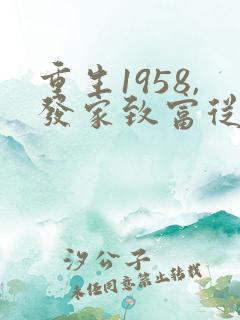 重生1958，
發家致富從
汐公子
未经同意禁止转载